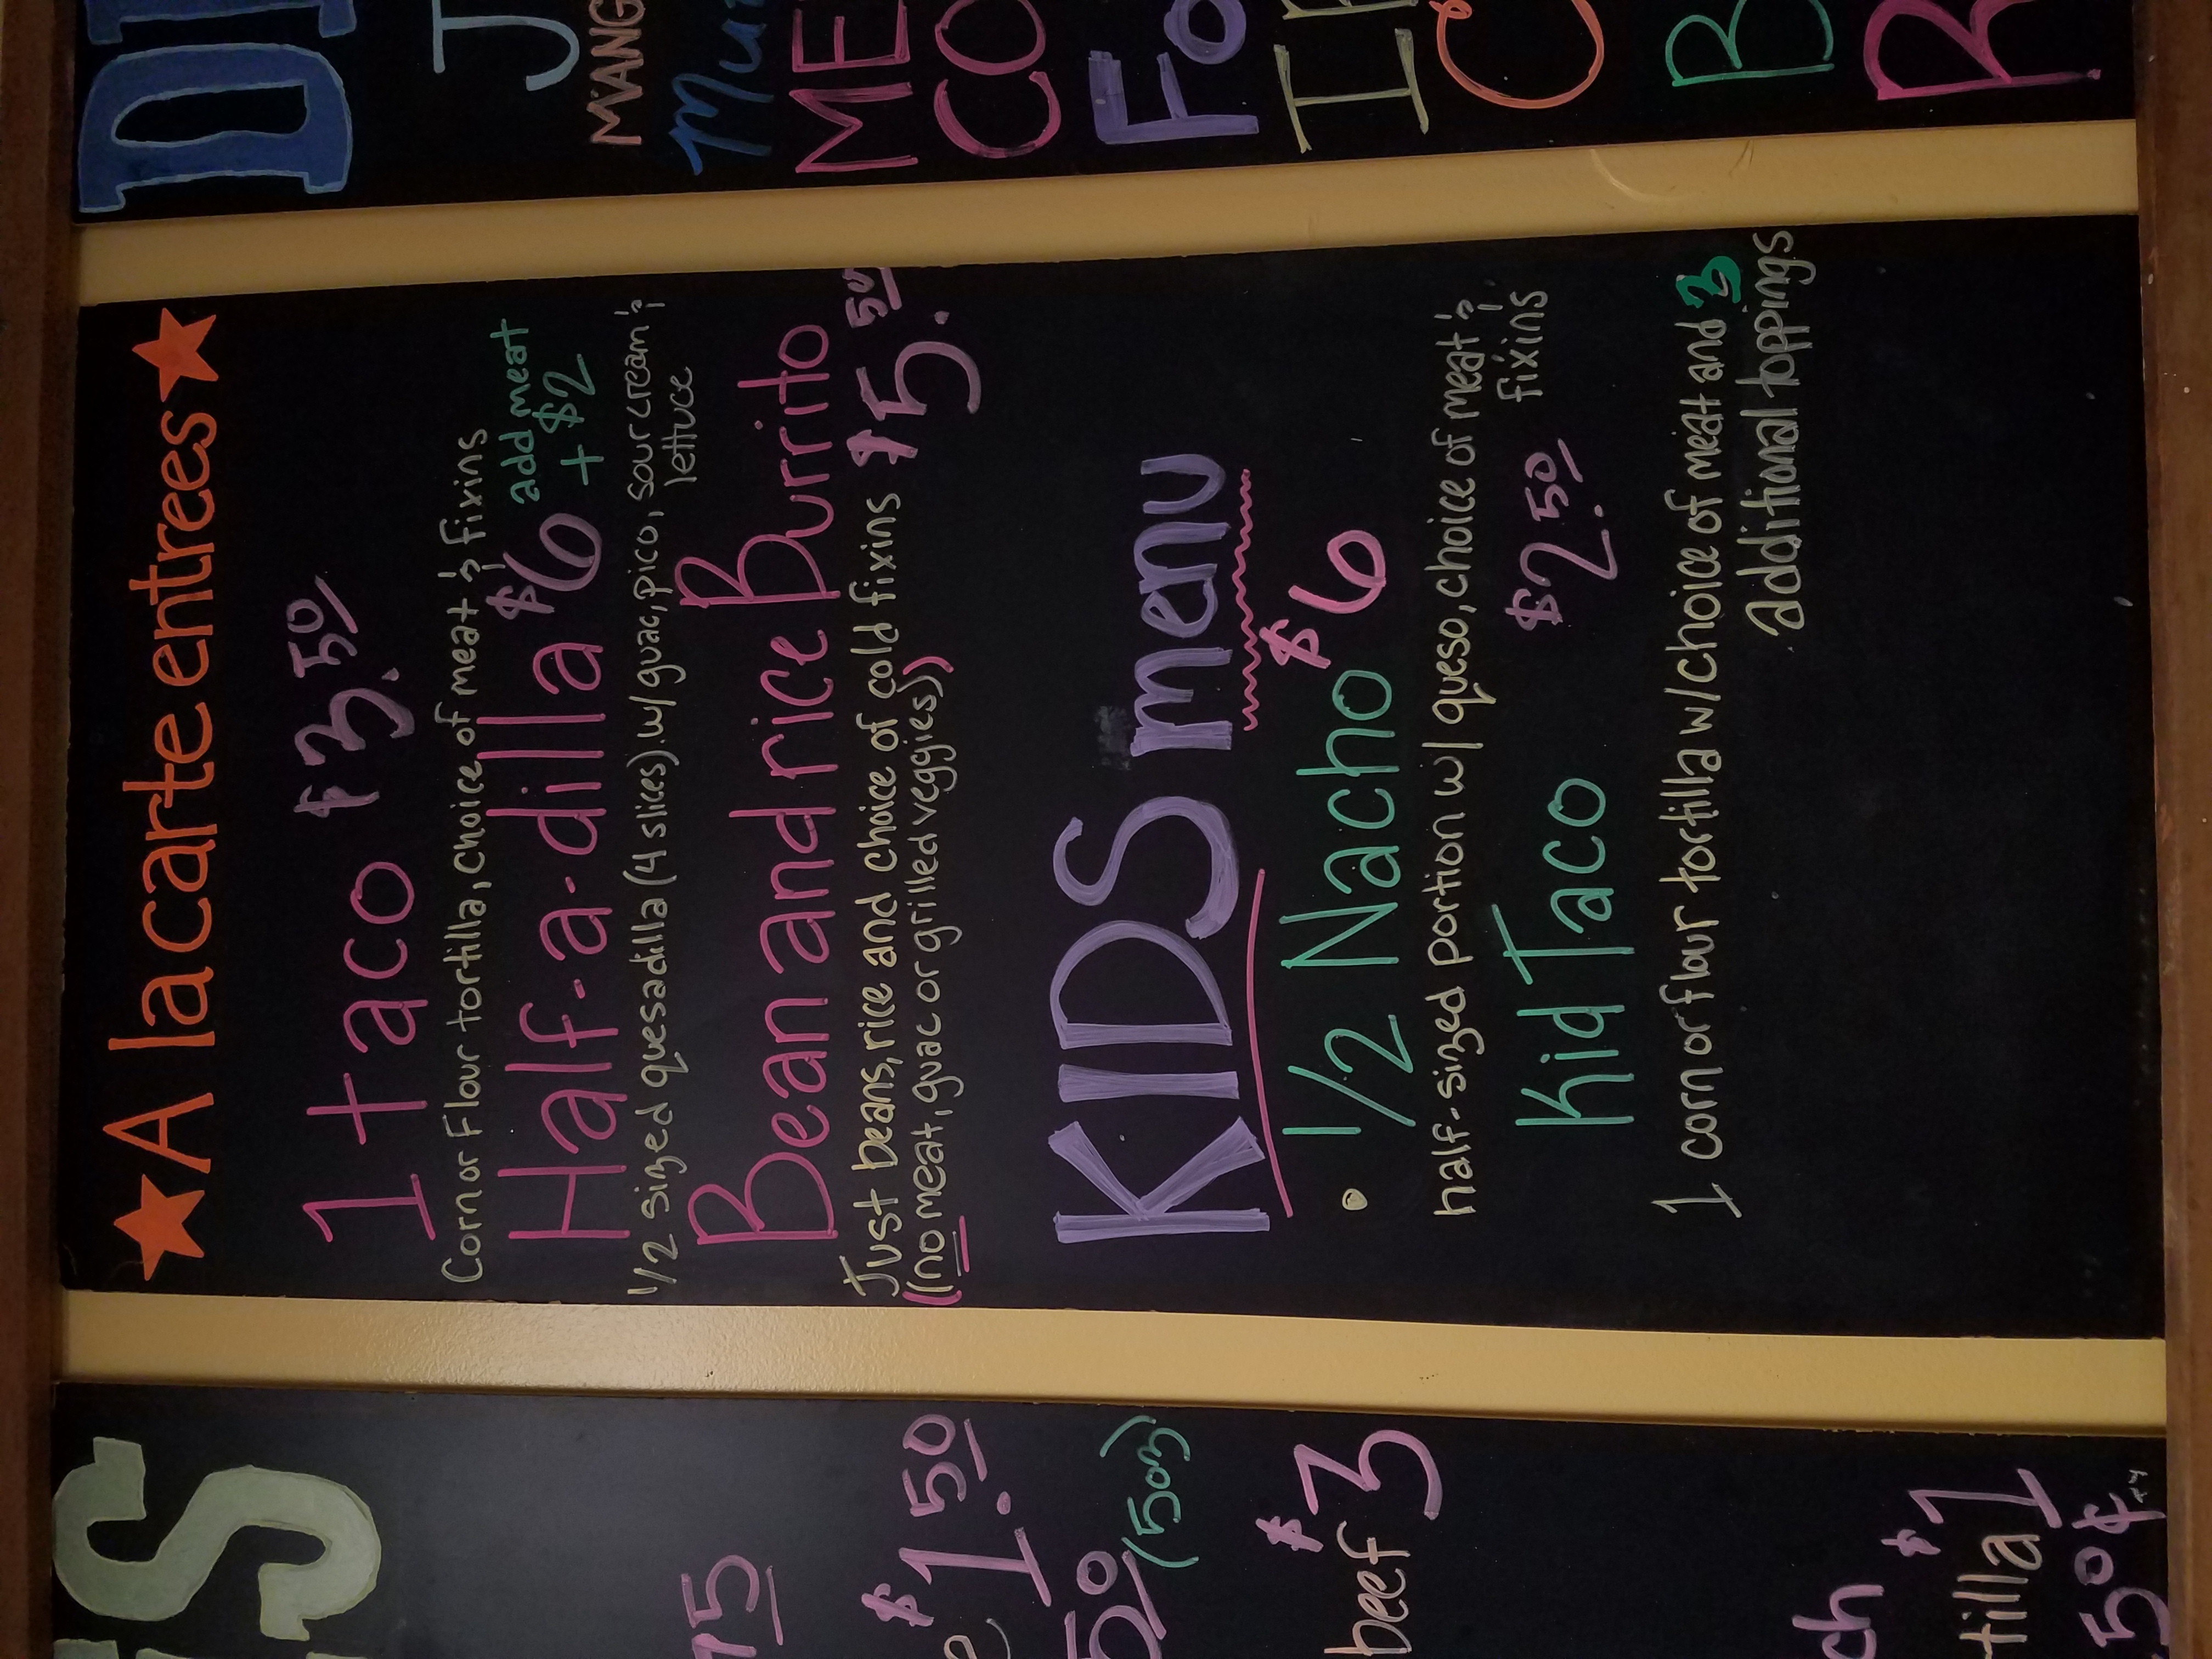 S
75
e $1.50
50 (5oz)
beef $3
ch
$1
tilla
50¢
★ A la carte entrees ★
1 taco $3.50
Corn or Flour tortilla, choice of meat & fixins
Half-a-dilla $6 add meat
+ $2
1/2 sized quesadilla (4 slices). w/ guac, pico, sour cream &
lettuce
Bean and rice Burrito
Just beans, rice and choice of cold fixins $5.50
((no meat, guac or grilled veggies))
KIDS menu
• 1/2 Nacho $6
half-sized portion w/ queso, choice of meat &
fixins
Kid Taco $2.50
1 corn or flour tortilla w/choice of meat and 3
additional toppings
D
J
MANG
Mu
ME
CO
Fo
I
C
B
R